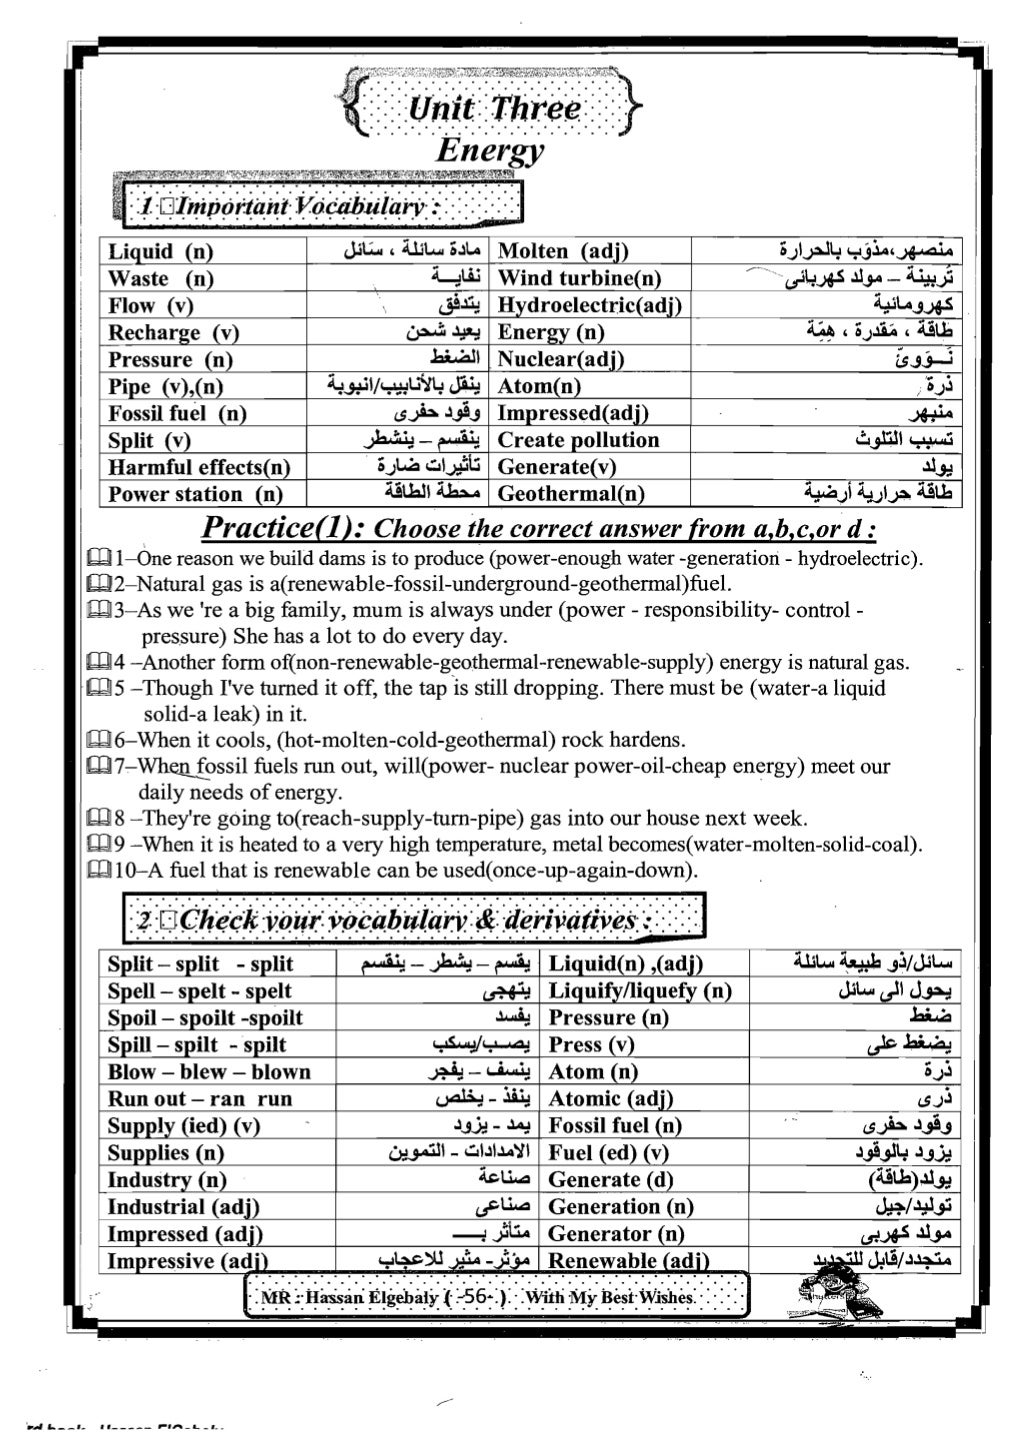 Unit Three
Energy
1 Important Vocabulary :
Liquid (n) مادة سائلة ، سَائل Molten (adj) منصهر،مذوّب بالحرارة
Waste (n) نفايـــة Wind turbine(n) تُربينة – مولد كهربائى
Flow (v) يتدفق Hydroelectric(adj) كهرومائية
Recharge (v) يعيد شحن Energy (n) طاقة ، مَقدرة ، هِمّة
Pressure (n) الضغط Nuclear(adj) نَـــوَوىّ
Pipe (v),(n) ينقل بالأنابيب/انبوبة Atom(n) ذرة
Fossil fuel (n) وقود حفرى Impressed(adj) منبهر
Split (v) ينقسم – ينشطر Create pollution تسبب التلوث
Harmful effects(n) تأثيرات ضارة Generate(v) يولد
Power station (n) محطة الطاقة Geothermal(n) طاقة حرارية أرضية
Practice(1): Choose the correct answer from a,b,c,or d :
1–One reason we build dams is to produce (power-enough water -generation - hydroelectric).
2–Natural gas is a(renewable-fossil-underground-geothermal)fuel.
3–As we 're a big family, mum is always under (power - responsibility- control -
pressure) She has a lot to do every day.
4 –Another form of(non-renewable-geothermal-renewable-supply) energy is natural gas.
5 –Though I've turned it off, the tap is still dropping. There must be (water-a liquid
solid-a leak) in it.
6–When it cools, (hot-molten-cold-geothermal) rock hardens.
7–When fossil fuels run out, will(power- nuclear power-oil-cheap energy) meet our
daily needs of energy.
8 –They're going to(reach-supply-turn-pipe) gas into our house next week.
9 –When it is heated to a very high temperature, metal becomes(water-molten-solid-coal).
10–A fuel that is renewable can be used(once-up-again-down).
2 Check your vocabulary & derivatives :
Split – split - split يقسم – يشطر – ينقسم Liquid(n) ,(adj) سائل/ذو طبيعة سائلة
Spell – spelt - spelt يتهجى Liquify/liquefy (n) يحول الى سائل
Spoil – spoilt -spoilt يفسد Pressure (n) ضغط
Spill – spilt - spilt يصب/يسكب Press (v) يضغط على
Blow – blew – blown ينسف – يفجر Atom (n) ذرة
Run out – ran run ينفذ - يخلص Atomic (adj) ذرى
Supply (ied) (v) يمد - يزود Fossil fuel (n) وقود حفرى
Supplies (n) الامدادات - التموين Fuel (ed) (v) يزود بالوقود
Industry (n) صناعة Generate (d) يولد(طاقة)
Industrial (adj) صناعى Generation (n) توليد/جيل
Impressed (adj) متأثر بـــ Generator (n) مولد كهربى
Impressive (adj) مؤثر- مثير للاعجاب Renewable (adj) متجدد/قابل للتجديد
MR : Hassan Elgebaly ( -56- ) With My Best Wishes